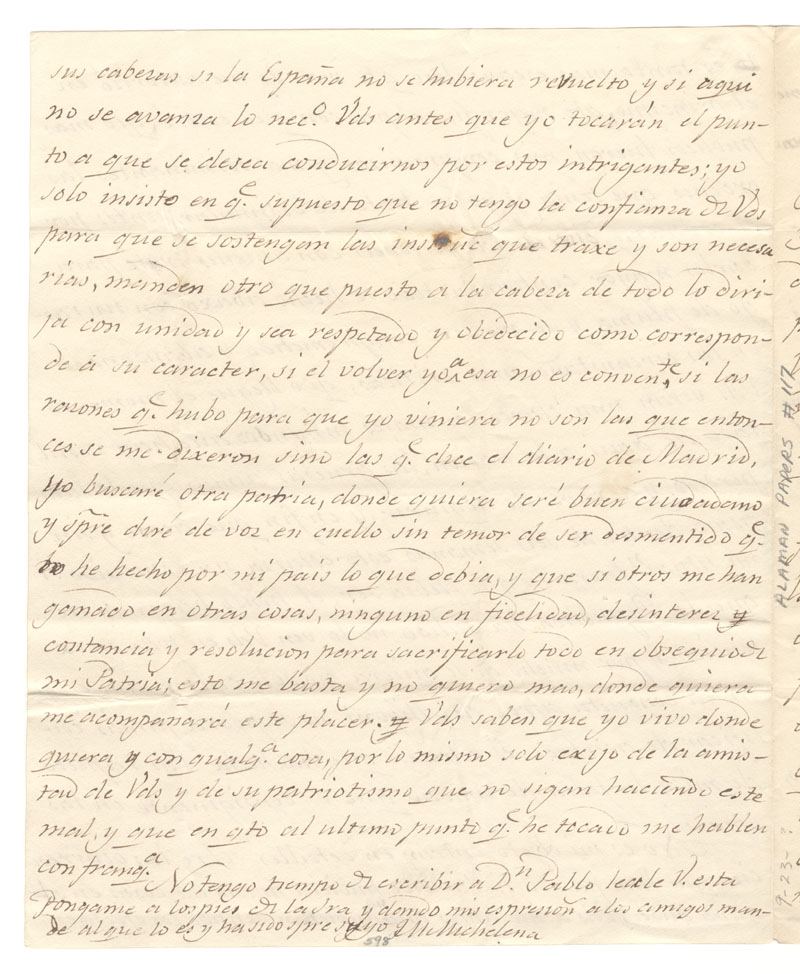 sus cabezas si la España no se hubiera revuelto y si aqui
no se avanza lo nec.º Vds antes que yo tocarán el pun-
to a que se desea conducirnos por estos intrigantes; yo
solo insisto en q.e supuesto que no tengo la confianza de Vds
para que se sostengan las que traxe y son necesa
rias, manden otro que puesto a la cabeza de todo lo diri-
ja con unidad y sea respetado y obedecido como correspon-
de a su caracter, si el volver yo a esa no es conven.te, si las
razones q.e hubo para que yo viniera no son las que enton-
ces se me dixeron sino las q.e dice el diario de Madrid,
yo buscaré otra patria, donde quiera seré buen ciudadano
y spre diré de voz en cuello sin temor de ser desmentido q.e
he hecho por mi pais lo que debia, y que si otros me han
ganado en otras cosas, ninguno en fidelidad, desinterez y
contancia y resolucion para sacrificarlo todo en obsequio de
mi Patria; esto me basta y no quiero mas, donde quiera
me acompañará este placer. Vds saben que yo vivo donde
quiera y con qualq.a cosa, por lo mismo solo exijo de la amis-
tad de Vds y de su patriotismo que no sigan haciendo este
mal, y que en qto al ultimo punto q.e he tocado me hablen
con franq.a
No tengo tiempo de escribir a D.n Pablo leale V. esta
Pongame a los pies de la Sra y dando mis espresion a los amigos man-
de al que lo es y ha sido spre suyo Michelena
598
ALAMAN PAPERS # 117
9-23-